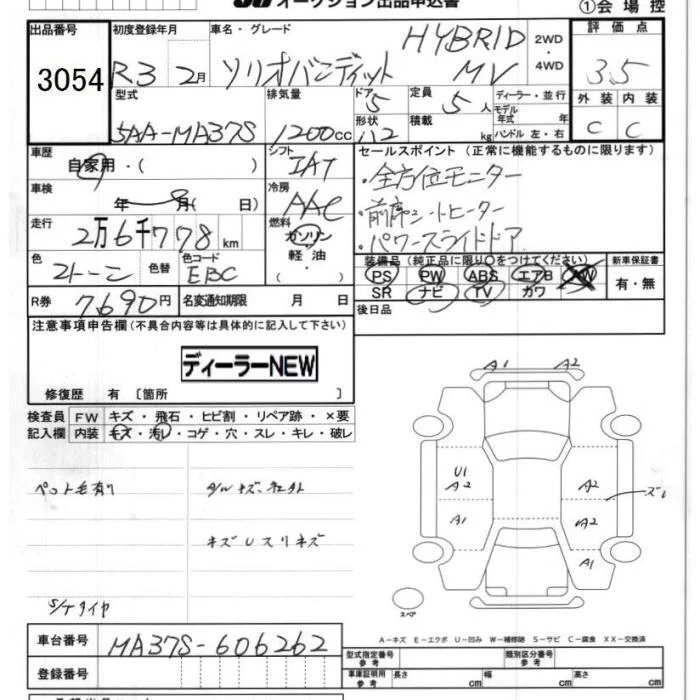 オークション出品申込書
①会場控
出品番号
3054
初度登録年月
R3 2月
車名・グレード
ソリオバンディット HYBRID MV
2WD・4WD
評価点
3.5
型式
5AA-MA37S
排気量
1200cc
ドア
5
形状
定員
5人
積載
kg
ディーラー・並行
モデル年式 年
ハンドル 左・右
外装 内装
C C
車歴
自家用・( )
シフト
IAT
車検
年 月( 日)
冷房
AAC
走行
2万6千778km
燃料
ガソリン・軽油・( )
色
2トーン
色替
色コード
EBC
R券 7,690円
名変通知期限 月 日
セールスポイント(正常に機能するものに限ります)
・全方位モニター
・前席シートヒーター
・パワースライドドア
装備品(純正品に限り○をつけてください)
新車保証書
PS PW ABS エアB AW
SR ナビ TV カワ
有・無
後日品
注意事項申告欄(不具合内容等は具体的に記入して下さい)
ディーラーNEW
修復歴 有〔箇所 〕
検査員記入欄
FW キズ・飛石・ヒビ割・リペア跡・×要
内装 キズ・汚レ・コゲ・穴・スレ・キレ・破レ
ペット毛有り
A/Wキズ、
キズUスリキズ
S/Tタイヤ
A1 A2
U1
A2
A1
A2
A2
A1
スペア
A−キズ E−エクボ U−凹み W−補修跡 S−サビ C−腐食 XX−交換済
車台番号 MA37S-606262
登録番号
型式指定番号 参考
類別区分番号 参考
車庫証明用 参考
長さ cm 幅 cm 高さ cm